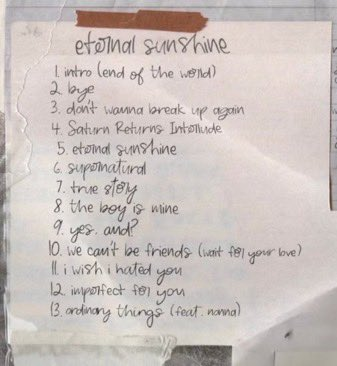 eternal sunshine
1. intro (end of the world)
2. bye
3. don't wanna break up again
4. Saturn Returns Interlude
5. eternal sunshine
6. supernatural
7. true story
8. the boy is mine
9. yes, and?
10. we can't be friends (wait for your love)
11. i wish i hated you
12. imperfect for you
13. ordinary things (feat. nonna)